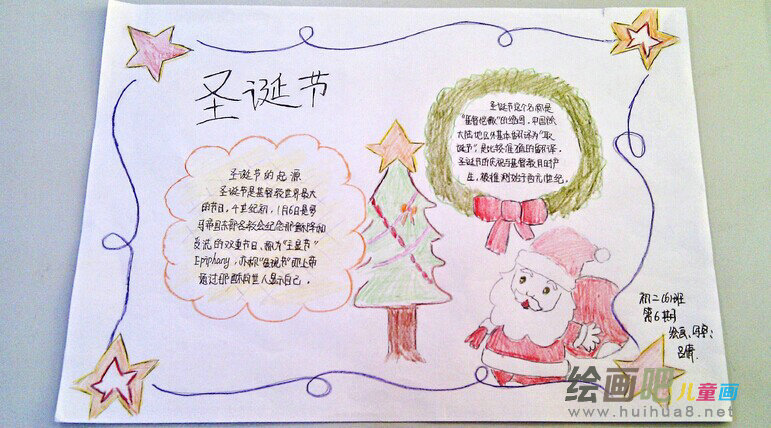 圣诞节
圣诞节的起源
圣诞节是基督教世界最大
的节日。4世纪初，1月6日是罗
马帝国东部各教会纪念耶稣降和
受洗的双重节日、称为"主显节"
Epiphany，亦称"显现节"即上帝
通过耶稣向世人显示自己。
圣诞节这个名称是
"基督弥撒"的缩写。中国
大陆地区外基本翻译为"耶
诞节"是比较准确的翻译。
圣诞节的庆祝与基督教同时产
生，被推测始于西元1世纪。
初二(6)班
第6期
绘画、
绘画吧儿童画
www.huihua8.net